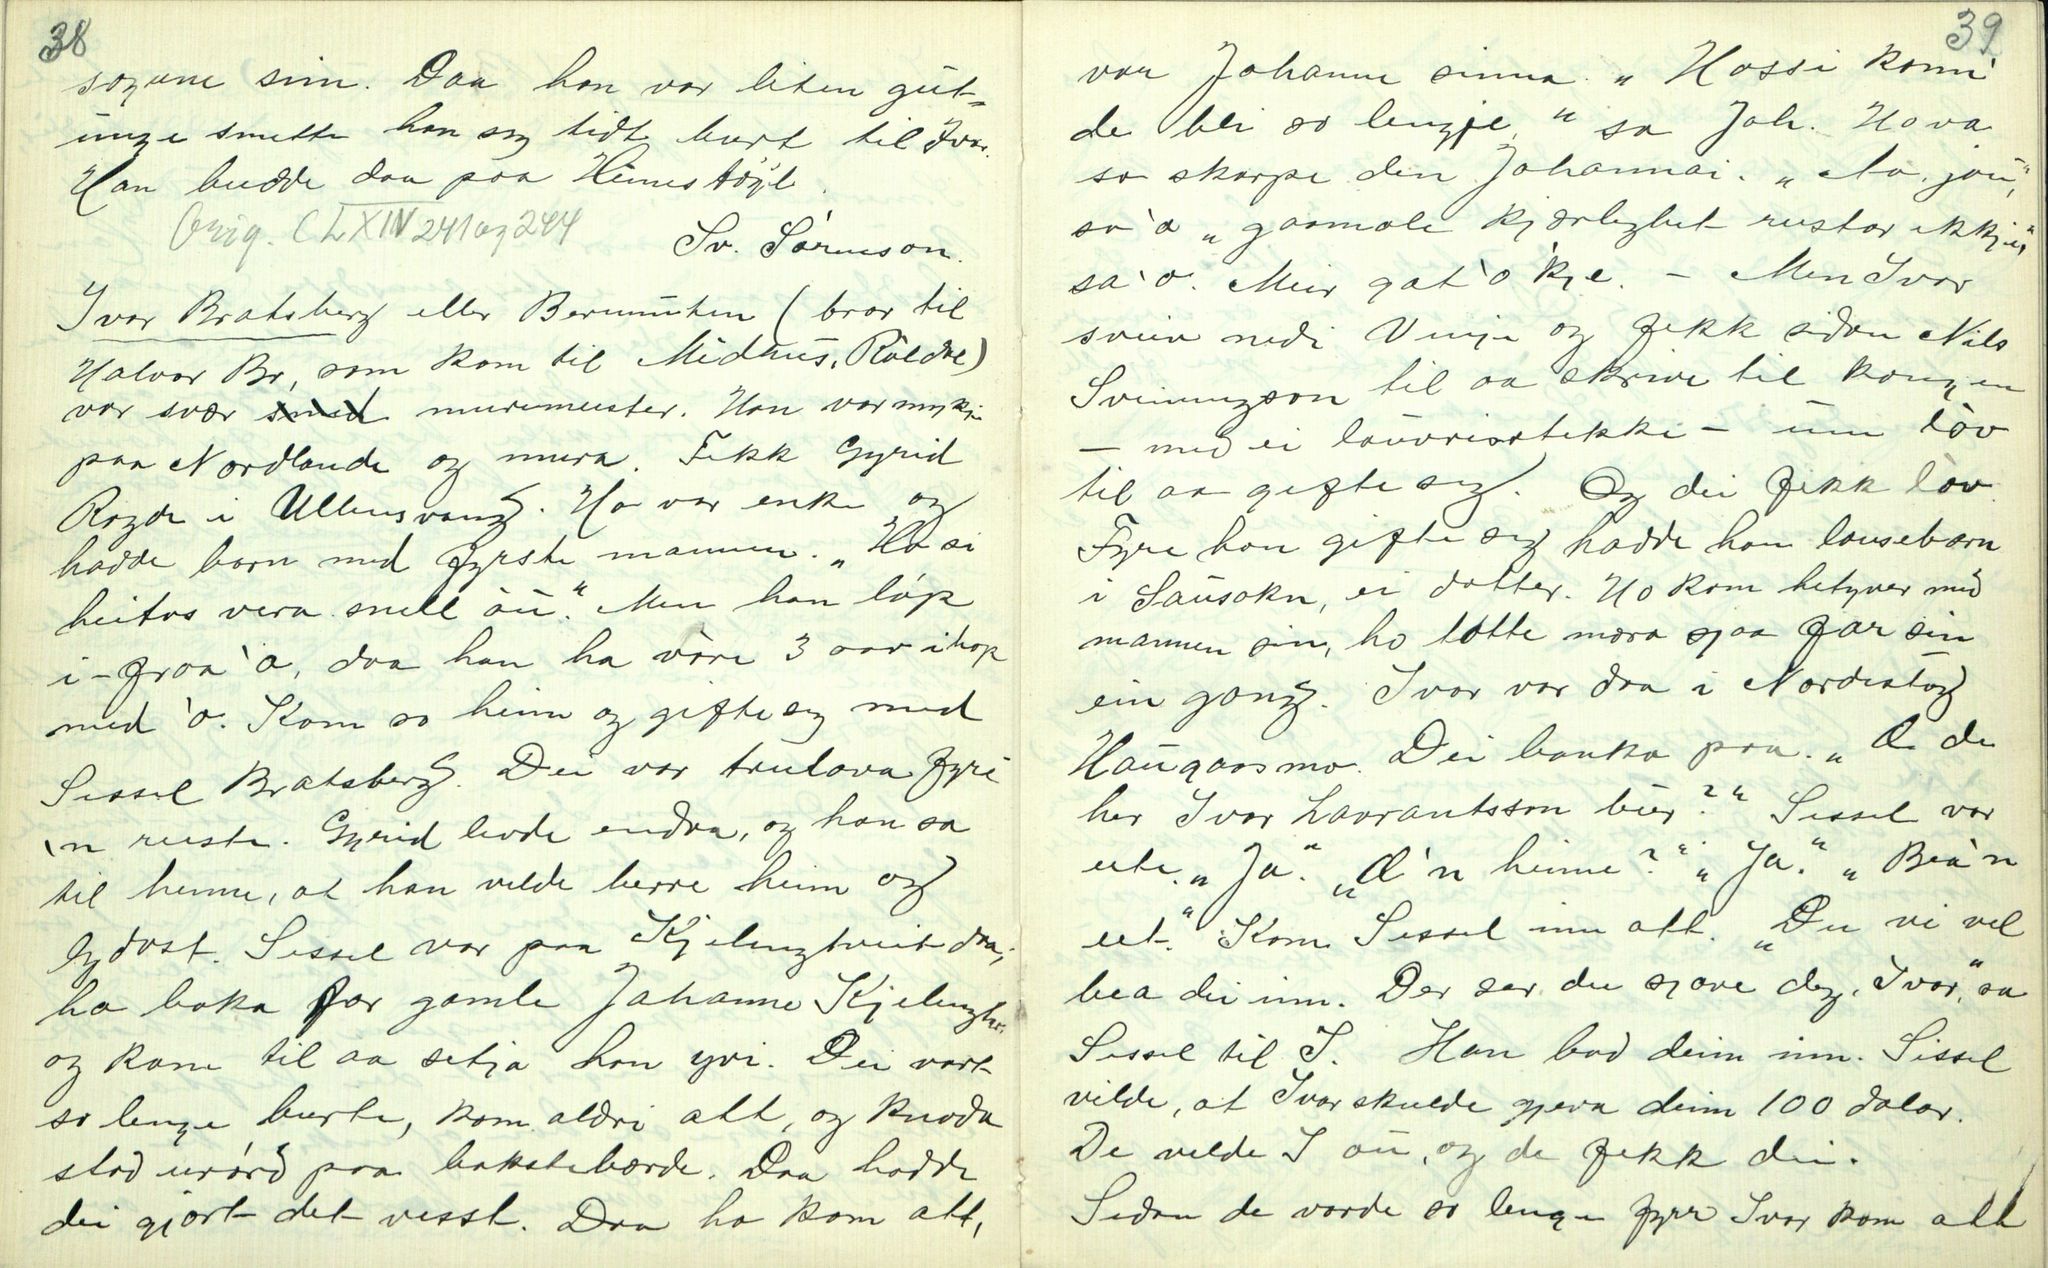 38
sogune sinn. Daa han var liten gut-
unge smette han seg tidt burt til Ivar.
Han budde daa paa Heimestøyl.
Orig. CLXIV 241 og 244
Sv. Sørenson.
Ivar Bratsberg eller Bermuten (bror til
Halvor Br, som kom til Midhus, Røldal)
var svær smed muremeister. Han var mykje
paa Nordlande og mura. Fekk Gyrid
Rogde i Ullensvang. Ho var enke og
hadde born med fyrste mannen. "Ho si
heitas vera snell òu." Men han løp
i-fraa 'o, daa han ha vore 3 aar ihop
med 'o. Kom so heim og gifte seg med
Sissel Bratsberg. Dei var trulova fyri
'n reiste. Gyrid livde endaa, og han sa
til henne, at han vilde berre heim og
lydast. Sissel var paa Kjelingtveit daa;
ho baka for gamle Johanne Kjelingtv.
og kom til aa setja han yvi. Dei vart
so lenge burte, kom aldri att, og knoda
stod urørd paa baksteborde. Daa hadde
dei gjort det visst. Daa ho kom att,
39
var Johanne sinna. "Hossi kunn'
de bli so lengje," sa Joh. Ho va
so skarpe den Johannai. "Aa, jau,"
sa 'o "gaamale kjærleghet rustar ikkje,"
sa 'o. Meir gat 'o kje. – Men Ivar
sveiv nedi Vinje og fekk sidan Nils
Sveinungson til aa skrive til kongen
– med ei lauvrisstikke – um lov
til aa gifte seg. Og dei fekk lov.
Fyre han gifte seg hadde han lausebarn
i Sausokn, ei dotter. Ho kom hetyver med
mannen sin, ho totte moro sjaa far sin
ein gong. Ivar var daa i Nordistog
Haugaasmo. Dei banka paa. "Æ de
her Ivar Lavrantsson bur?" Sissel var
ute. "Ja." "Æ 'n heime?" "Ja." "Bea 'n
ut." Kom Sissel inn att. "Du vi vel
bea dei inn. Der ser du sjave deg, Ivar," sa
Sissel til I. Han bad deim inn. Sissel
vilde, at Ivar skulde gjeva deim 100 dalar.
De vilde I òu, og de fekk dei.
Sidan de varde so lenge fyrr Ivar kom att